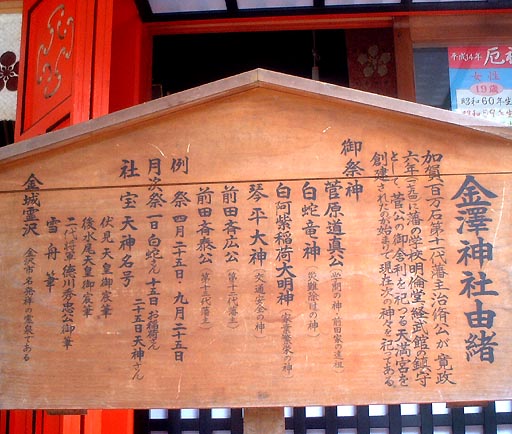 金澤神社由緒
加賀百万石第十一代藩主治脩公が寛政
六年(一七九四)に藩の学校明倫堂経武館の鎮守
として、菅公の御舎利を祀つる天満宮を
創建されたのが始まで現在次の神々を祀つてある
御祭神
菅原道真公(学問の神・前田家の遠祖)
白蛇竜神(災難除けの神)
白阿紫稲荷大明神(家業繁栄の神)
琴平大神(交通安全の神)
前田斉広公(第十二代藩主)
前田斉泰公(第十三代藩主)
例祭 四月二十五日・九月二十五日
月次祭 一日白蛇さん 十五日お稲荷さん
二十五日天神さん
社宝 天神名号
伏見天皇御宸筆
後水尾天皇御宸筆
二代将軍徳川秀忠公御筆
雪舟筆
金城霊沢 金沢市名発祥の霊泉である
平成14年 厄
女性
19歳
昭和60年生